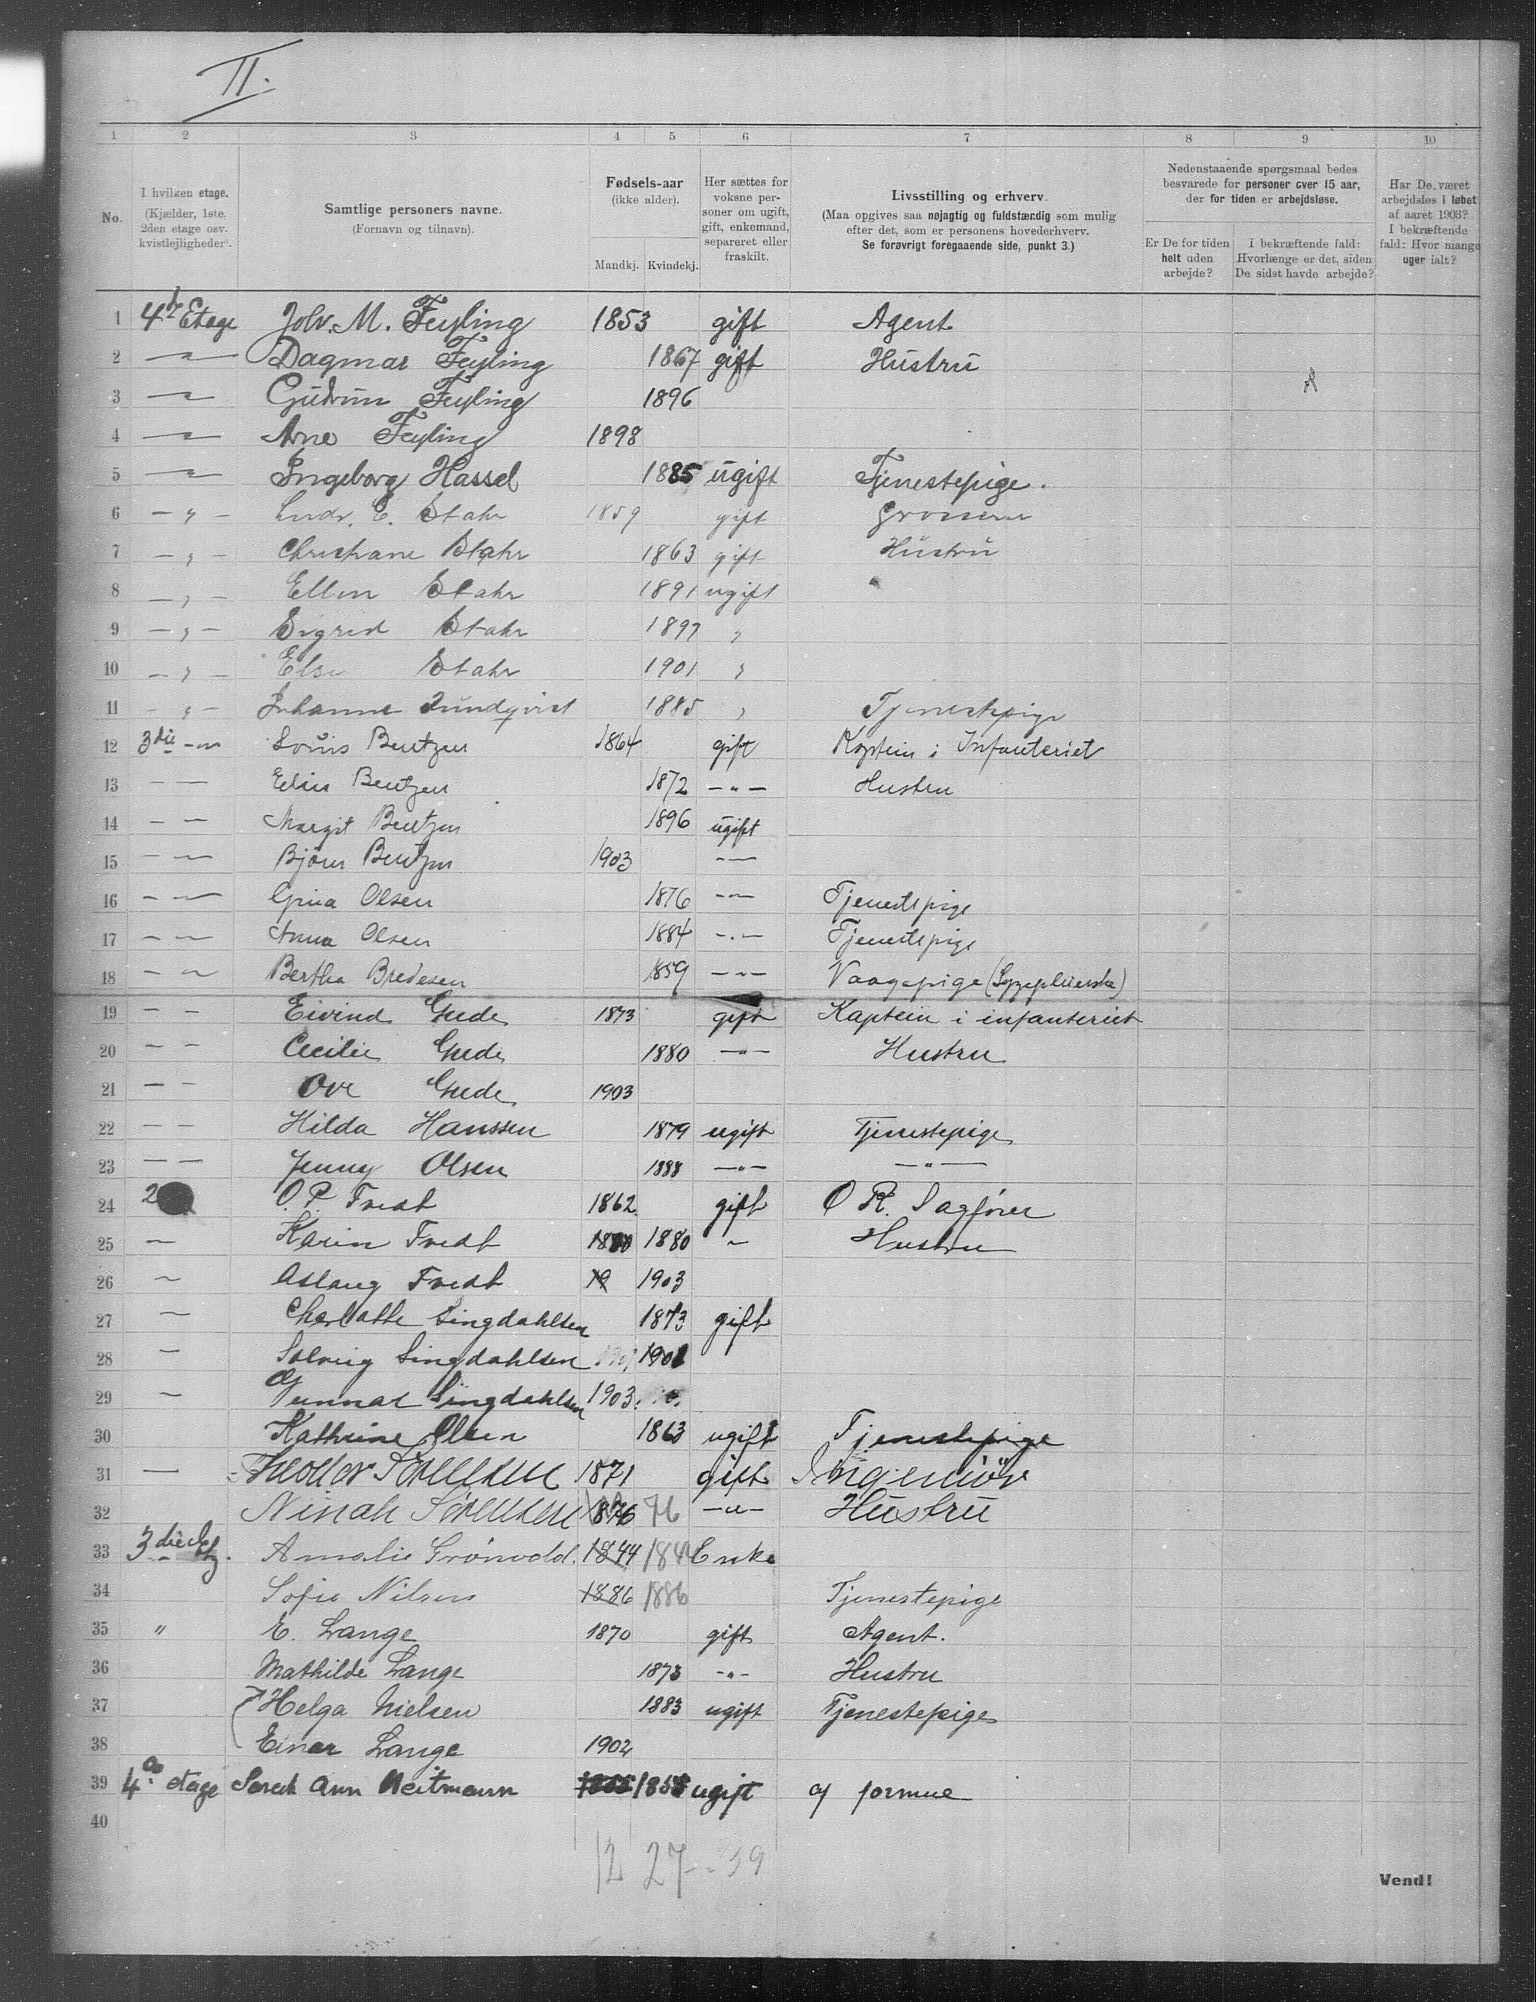 II.
1 2 3 4 5 6 7 8 9 10
No.
I hvilken etage.
(Kjælder, 1ste,
2den etage osv.
kvistleiligheder).
Samtlige personers navne.
(Fornavn og tilnavn).
Fødsels-aar
(ikke alder).
Mandkj. Kvindekj.
Her sættes for
voksne per-
soner om ugift,
gift, enkemand,
separeret eller
fraskilt.
Livsstilling og erhverv.
(Maa opgives saa nøjagtig og fuldstændig som mulig
efter det, som er personens hovederhverv.
Se forøvrigt foregaaende side, punkt 3.)
Nedenstaaende spørgsmaal bedes
besvarede for personer over 15 aar,
der for tiden er arbejdsløse.
Er De for tiden
helt uden
arbejde?
I bekræftende fald:
Hvorlænge er det, siden
De sidst havde arbejde?
Har De været
arbejdsløs i løbet
af aaret 1903?
I bekræftende
fald: Hvor mange
uger ialt?
1 4 Etage Joh. M. Feyling 1853 gift Agent
2 — " — Dagmar Feyling 1867 gift Hustru
3 — " — Gudrun Feyling 1896
4 — " — Arne Feyling 1898
5 — " — Ingeborg Hassel 1885 ugift Tjenestepige.
6 — " — Ludv. E. Stahr 1859 gift Grosserer
7 — " — Christiane Stahr 1863 gift Hustru
8 — " — Ellen Stahr 1891 ugift
9 — " — Sigrid Stahr 1897 "
10 — " — Else Stahr 1901 "
11 — " — Johanne Lundqvist 1885 " Tjenestepige
12 3die — " — Louis Bentzen 1864 gift Kaptein i Infanteriet
13 — — Elise Bentzen 1872 — " — Hustru
14 — — Margit Bentzen 1896 ugift
15 — — Bjørn Bentzen 1903 — " —
16 — — Grina Olsen 1876 — " — Tjenestepige
17 — — Anna Olsen 1884 — " — Tjenestepige
18 — — Bertha Bredesen 1859 — " — Vaagepige (Sygepleierske)
19 — — Eivind Gude 1873 gift Kaptein i infanteriet
20 — — Cecilie Gude 1880 — " — Hustru
21 — — Ove Gude 1903
22 — — Hilda Hanssen 1879 ugift Tjenestepige
23 — — Jenny Olsen 1888 — " — — " —
24 2 O. P. Tvedt 1862 gift O R. Sagfører
25 — Karin Tvedt 1880 1880 " Hustru
26 — Aslaug Tvedt 19 1903
27 — Charlotte Singdahlsen 1873 gift
28 — Solveig Singdahlsen 1901 1901
29 — Gunnar Singdahlsen 1903.
30 Kathrine Olsen 1863 ugift Tjenestepige
31 — Theodor Sørensen 1871 gift Ingeniør
32 Ninah Sørensen 1876 76 — " — Hustru
33 3die Etg. Amalie Grønvold. 1844 184 Enke
34 Sofie Nilsen 1886 1886 Tjenestepige
35 " E. Lange 1870 gift Agent.
36 Mathilde Lange 1873 — " — Hustru
37 Helga Nielsen 1883 ugift Tjenestepige
38 Einar Lange 1902
39 4de etage Sarah Ann Heitmann 1855 1855 ugift af formue
40
12 27 - 39
Vend!